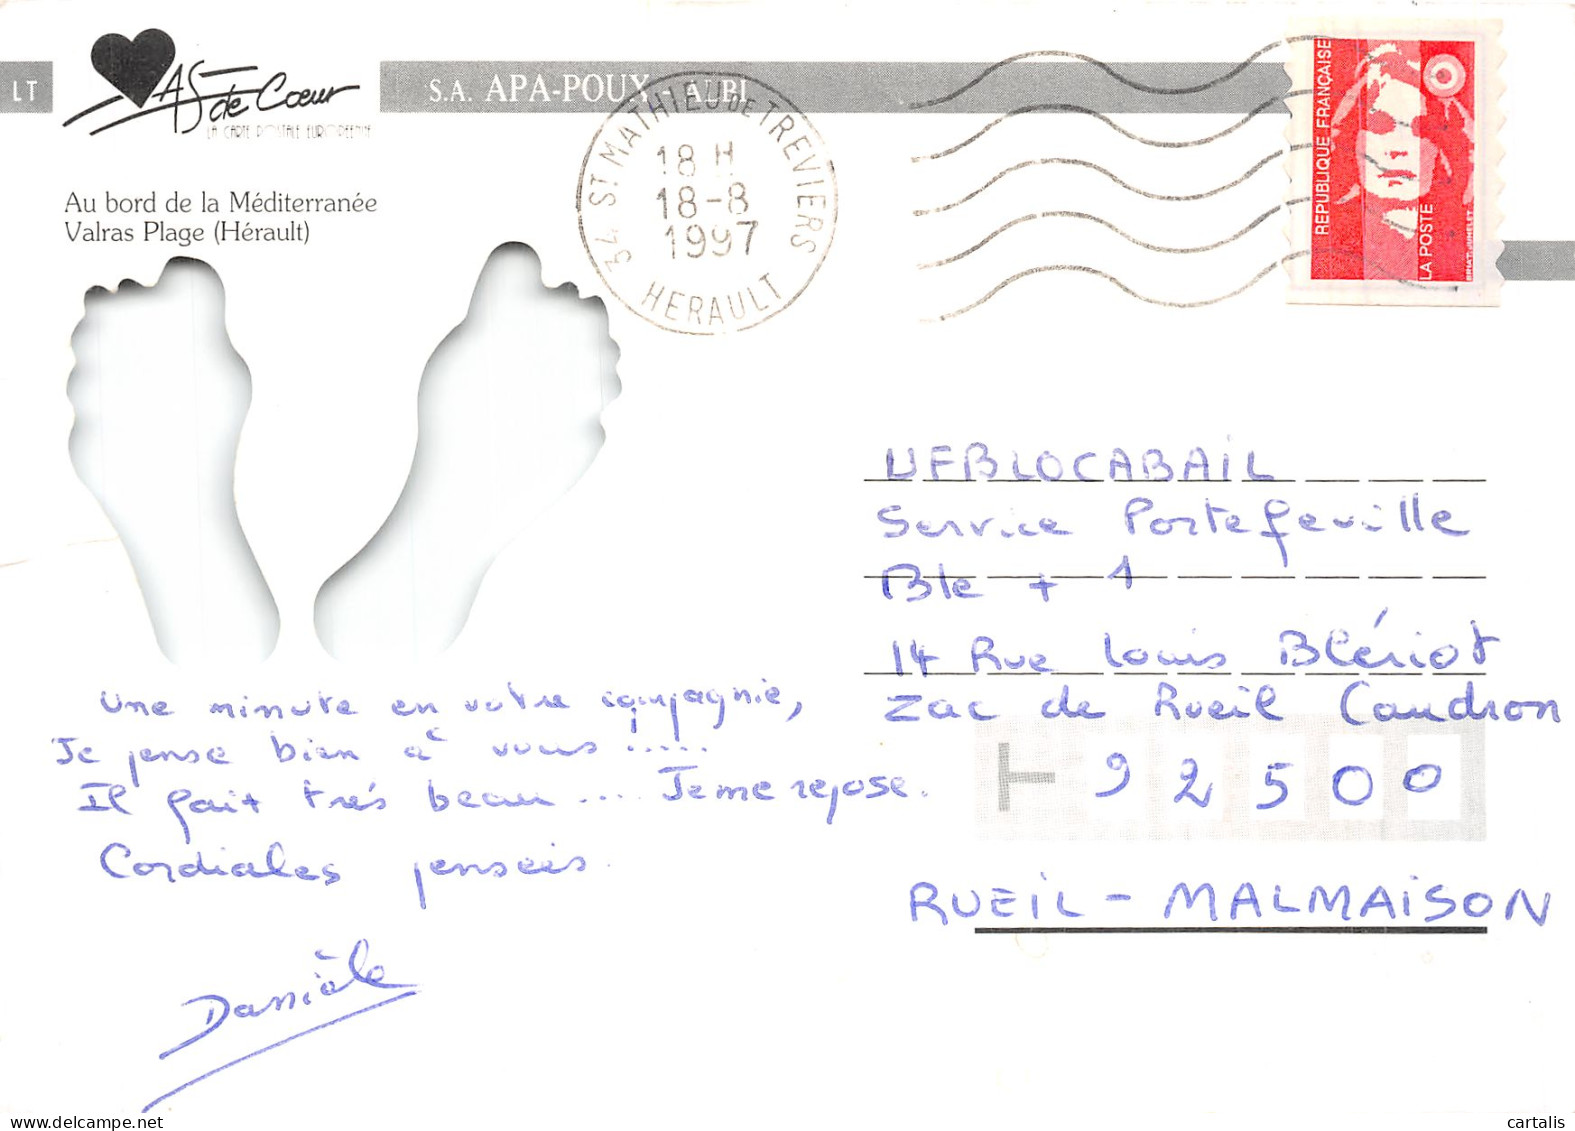 LT
AS de Cœur
LA CARTE POSTALE EUROPEENNE
S.A. APA-POUX - ALBI
34 ST MATHIEU DE TREVIERS
18 H
18-8
1997
HERAULT
REPUBLIQUE FRANÇAISE
LA POSTE
BRIAT-JUMELET
Au bord de la Méditerranée
Valras Plage (Hérault)
UFBLOCABAIL
Service Portefeuille
Ble + 1
14 Rue Louis Blériot
Zac de Rueil Caudron
92500
RUEIL - MALMAISON
Une minute en votre compagnie,
Je pense bien à vous .....
Il fait très beau .... Je me repose.
Cordiales pensées.
Danièle
cartalis
delcampe.net